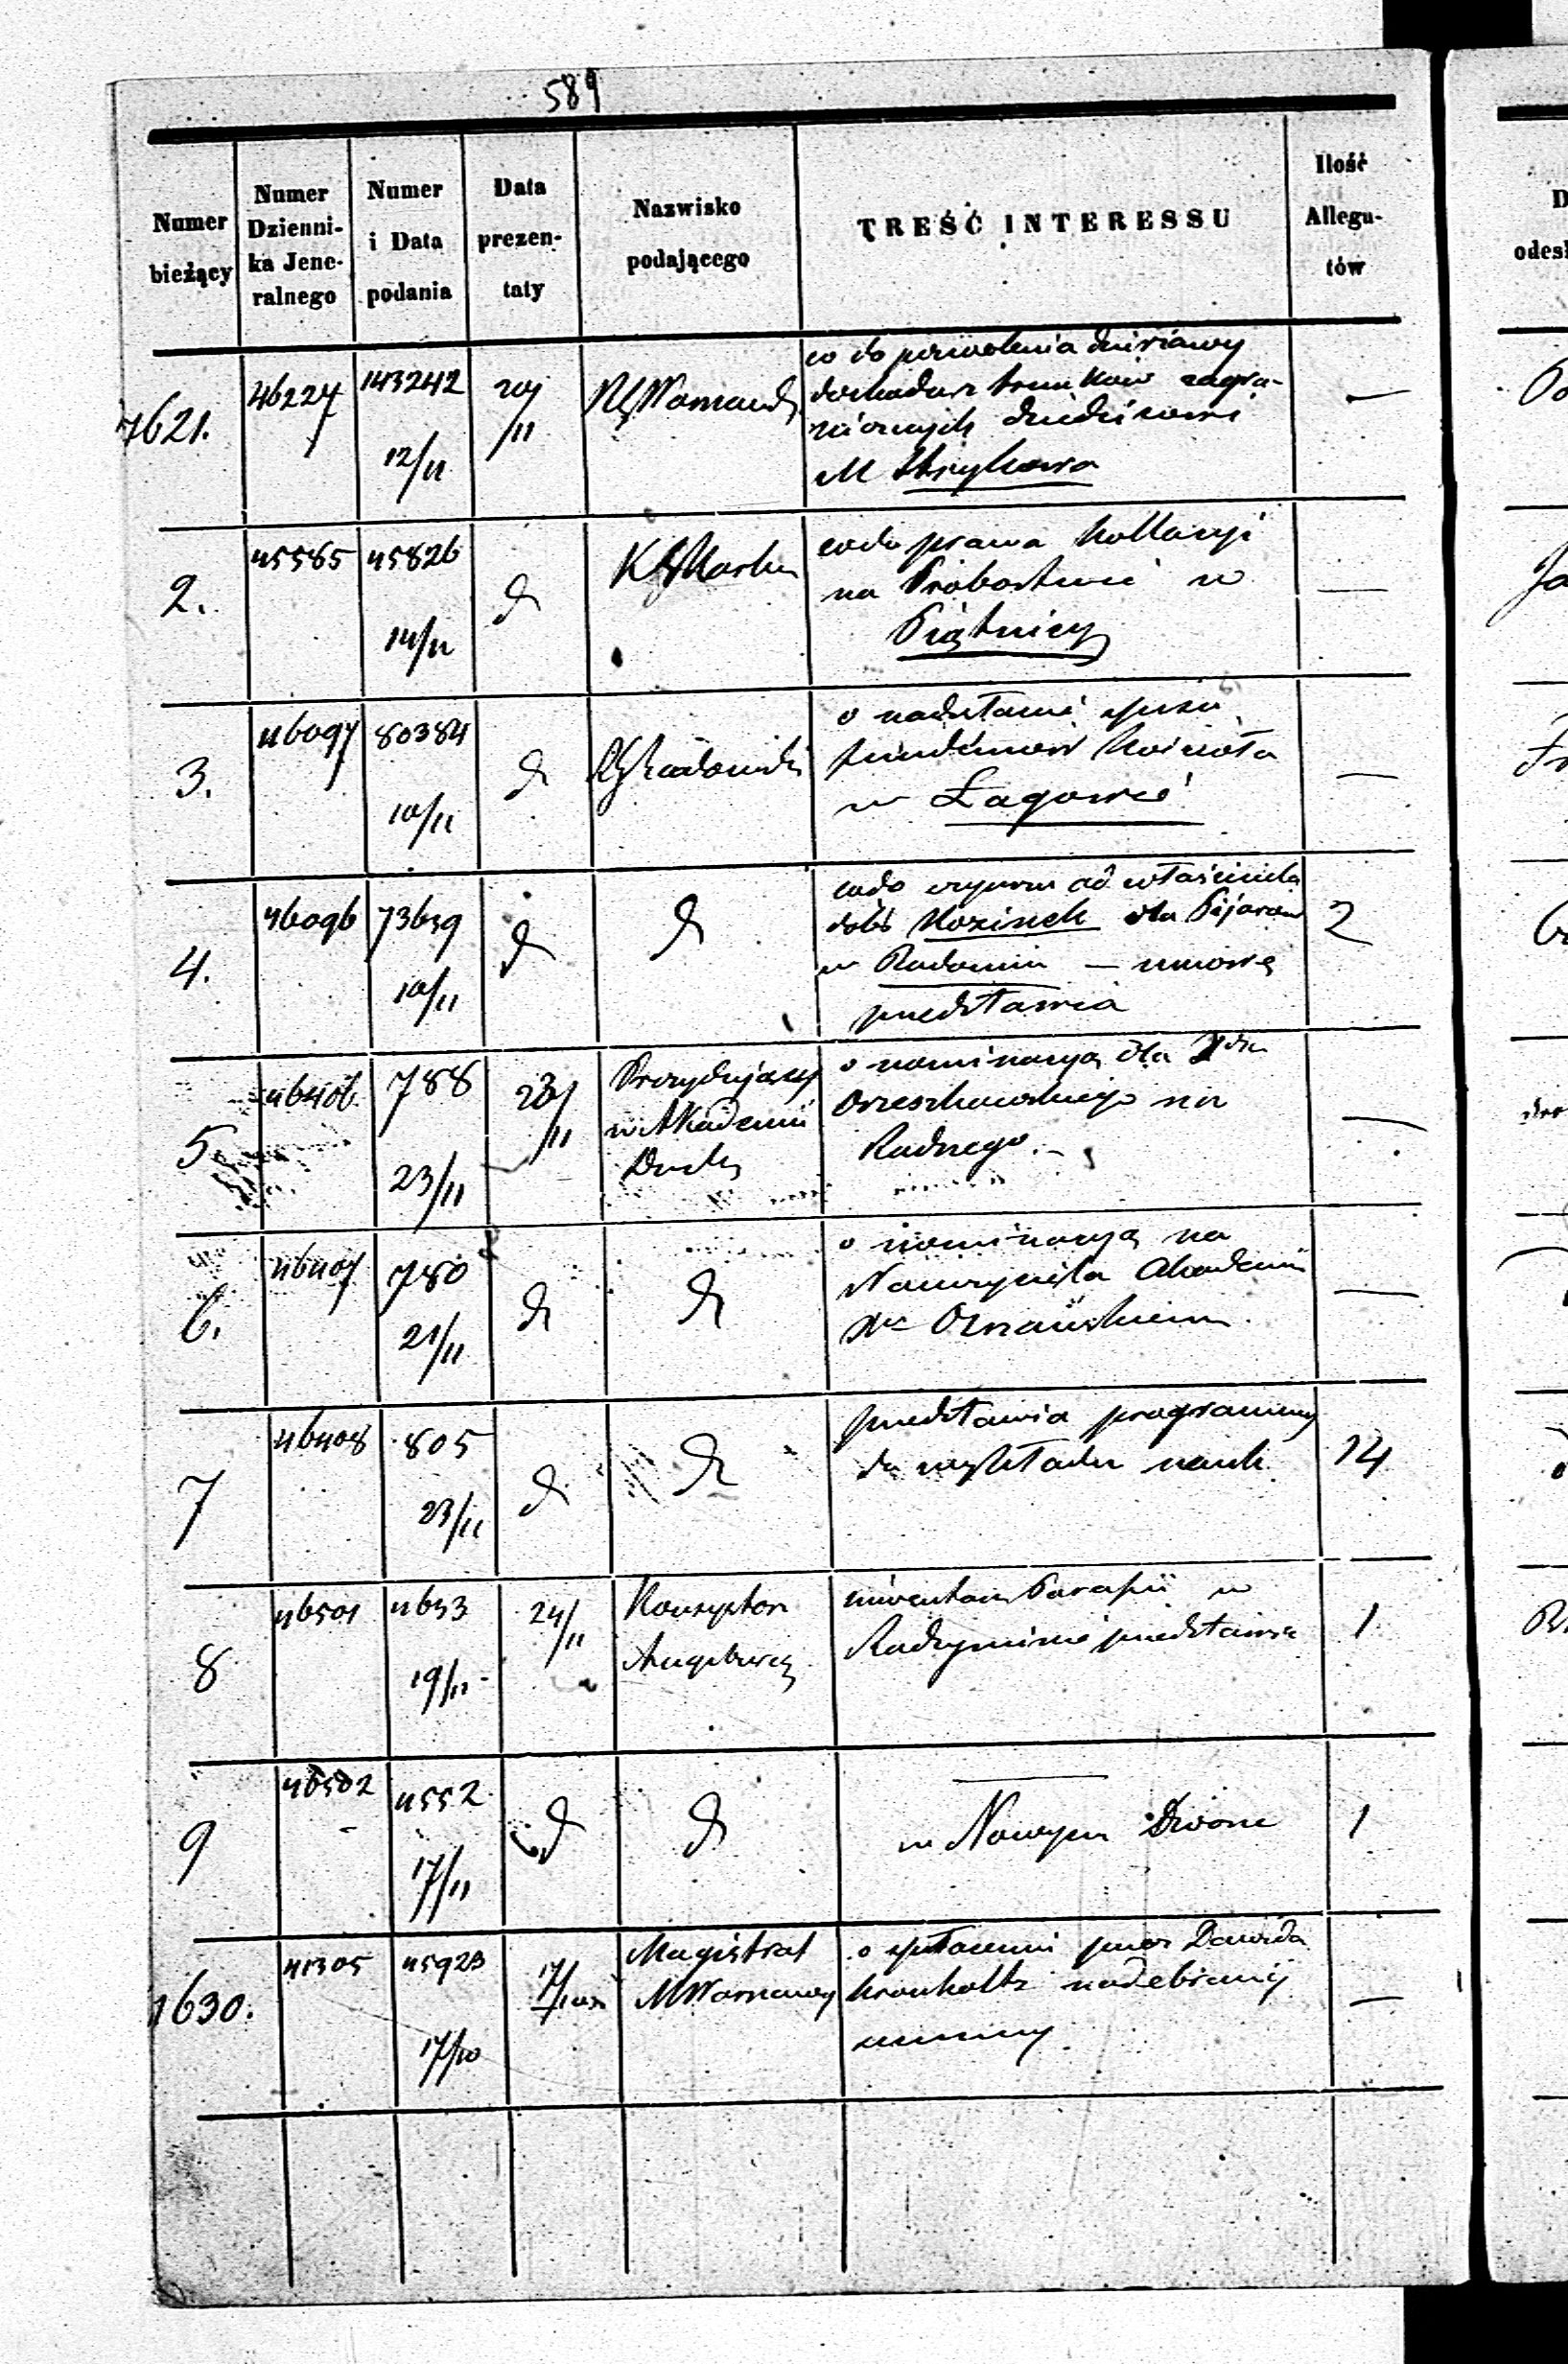 589
Numer bieżący
Numer Dzienni-ka Jene-ralnego
Numer i Data podania
Data prezen-taty
Nazwisko podającego
TREŚĆ INTERESSU
Ilość Allegu-tów
7621.
46227
143242
12/11
20/11
co do
trunków zagra-
nicznych
M Strykowa
—
2.
45585
45826
14/11
do
co do prawa kollacyi
na Probostwie w
Piątnicy
—
3.
46097
80384
10/11
do
o nadesłanie opisu
funduszów kościoła
w Łagowie
—
4.
46096
73659
10/11
do
do
co do od właściciela
dóbr Kozinek dla Pijarów
w Radomiu — umowę
przedstawia
2
5
46406
788
23/11
23/11
Prezydujący
w Akademii
Duch
o nominacyą dla
Orzeszkowskiego na
Radnego.
—
6.
46407
780
21/11
do
do
o nominacyą na
Nauczyciela Akademii
—
7
46408
805
23/11
do
do
przedstawia programmy
do wykładu nauk
14
8
46501
4653
19/11
24/11
Konsystorz
Augsburg
inwentarz Parafii w
Radzyminie przedstawia
1
9
46502
4552
17/11
do
do
——
w Nowym Dworze
1
1630.
41305
45923
17/10
Magistrat
M Warszawy
o spłacenie przez Dawida
Kronholtz nadebranej
summy
—